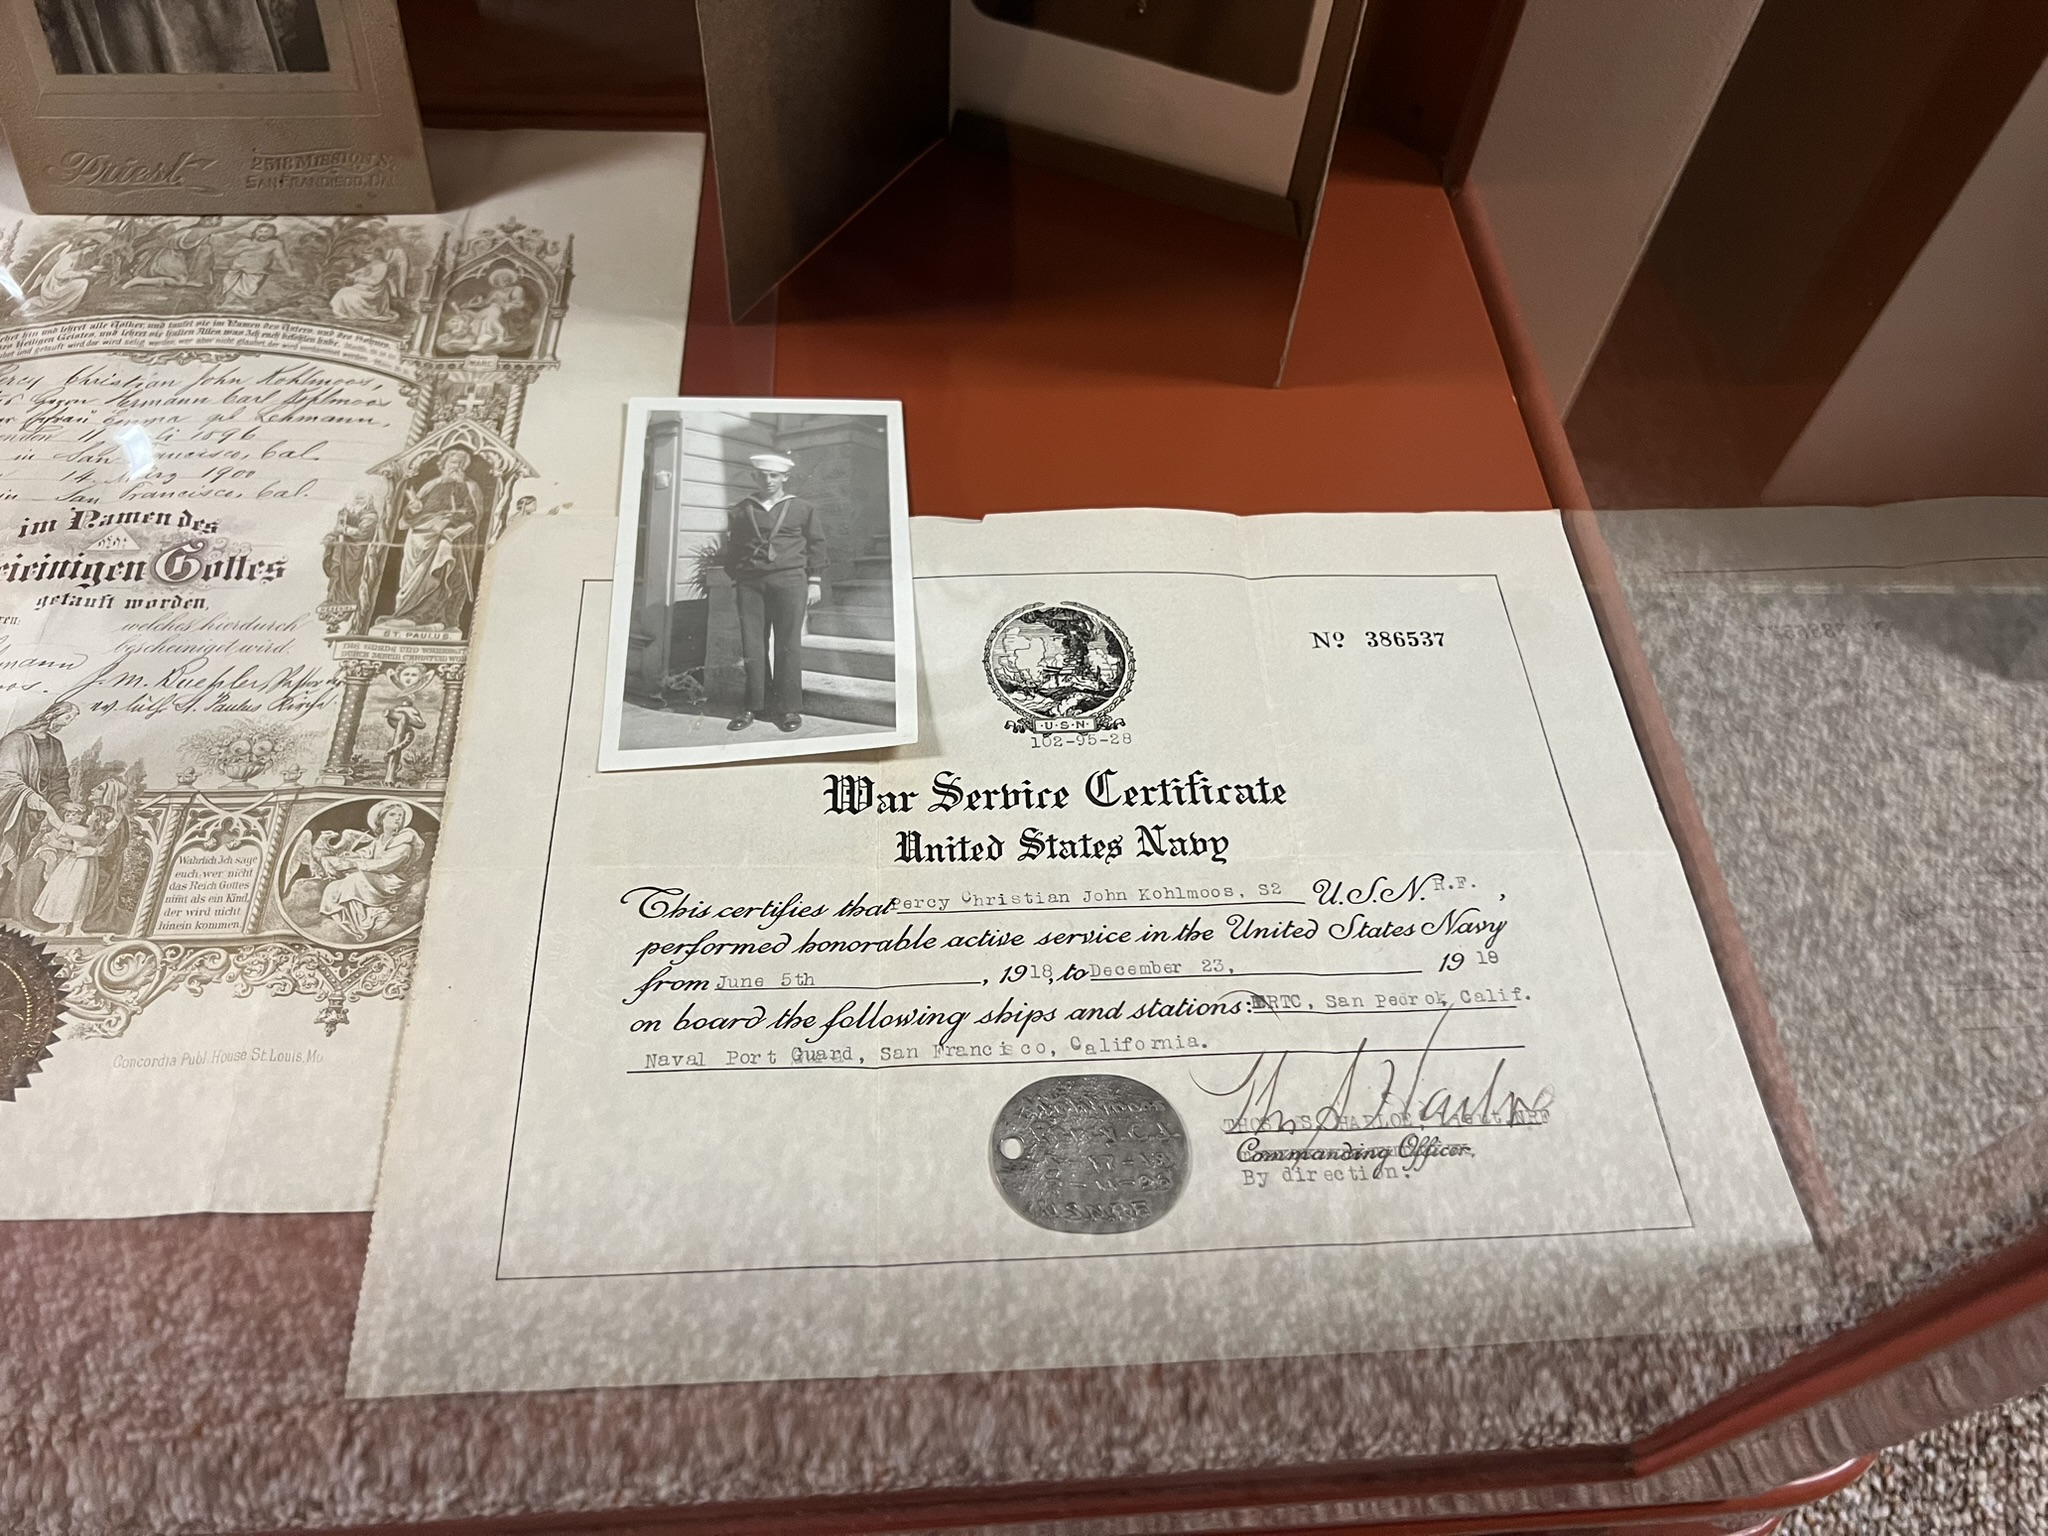 Priest
2518 Mission S
San Francisco, Cal
hin und lehret alle Völker, und taufet sie im Namen des Vaters und des Sohnes
Heiligen Geistes, und lehret sie halten Alles was Ich euch befohlen habe.
und getauft wird der wird selig werden, wer aber nicht glaubet, der wird verdammet werden.
MARC.
Percy Christian John Kohlmoos,
Hermann Carl Kohlmoos
Emma geb Lehmann,
11 Juli 1896
in San Francisco, Cal.
14. März 1900
in San Francisco, Cal.
im Namen des
Dreieinigen Gottes
getauft worden,
welches hierdurch
bescheiniget wird.
J. M. Buehler,
St. Paulus
ST. PAULUS.
Wahrlich Ich sage
euch: wer nicht
das Reich Gottes
nimt als ein Kind,
der wird nicht
hinein kommen.
Concordia Publ. House St. Louis, Mo
No 386537
U·S·N·
102-95-28
War Service Certificate
United States Navy
This certifies that Percy Christian John Kohlmoos, S2 U.S.N.R.F. ,
performed honorable active service in the United States Navy
from June 5th , 1918, to December 23, 1918
on board the following ships and stations: NRTC, San Pedro, Calif.
Naval Port Guard, San Francisco, California.
THOS. S. HARLOE, Lieut NRF
Commanding Officer,
By direction.